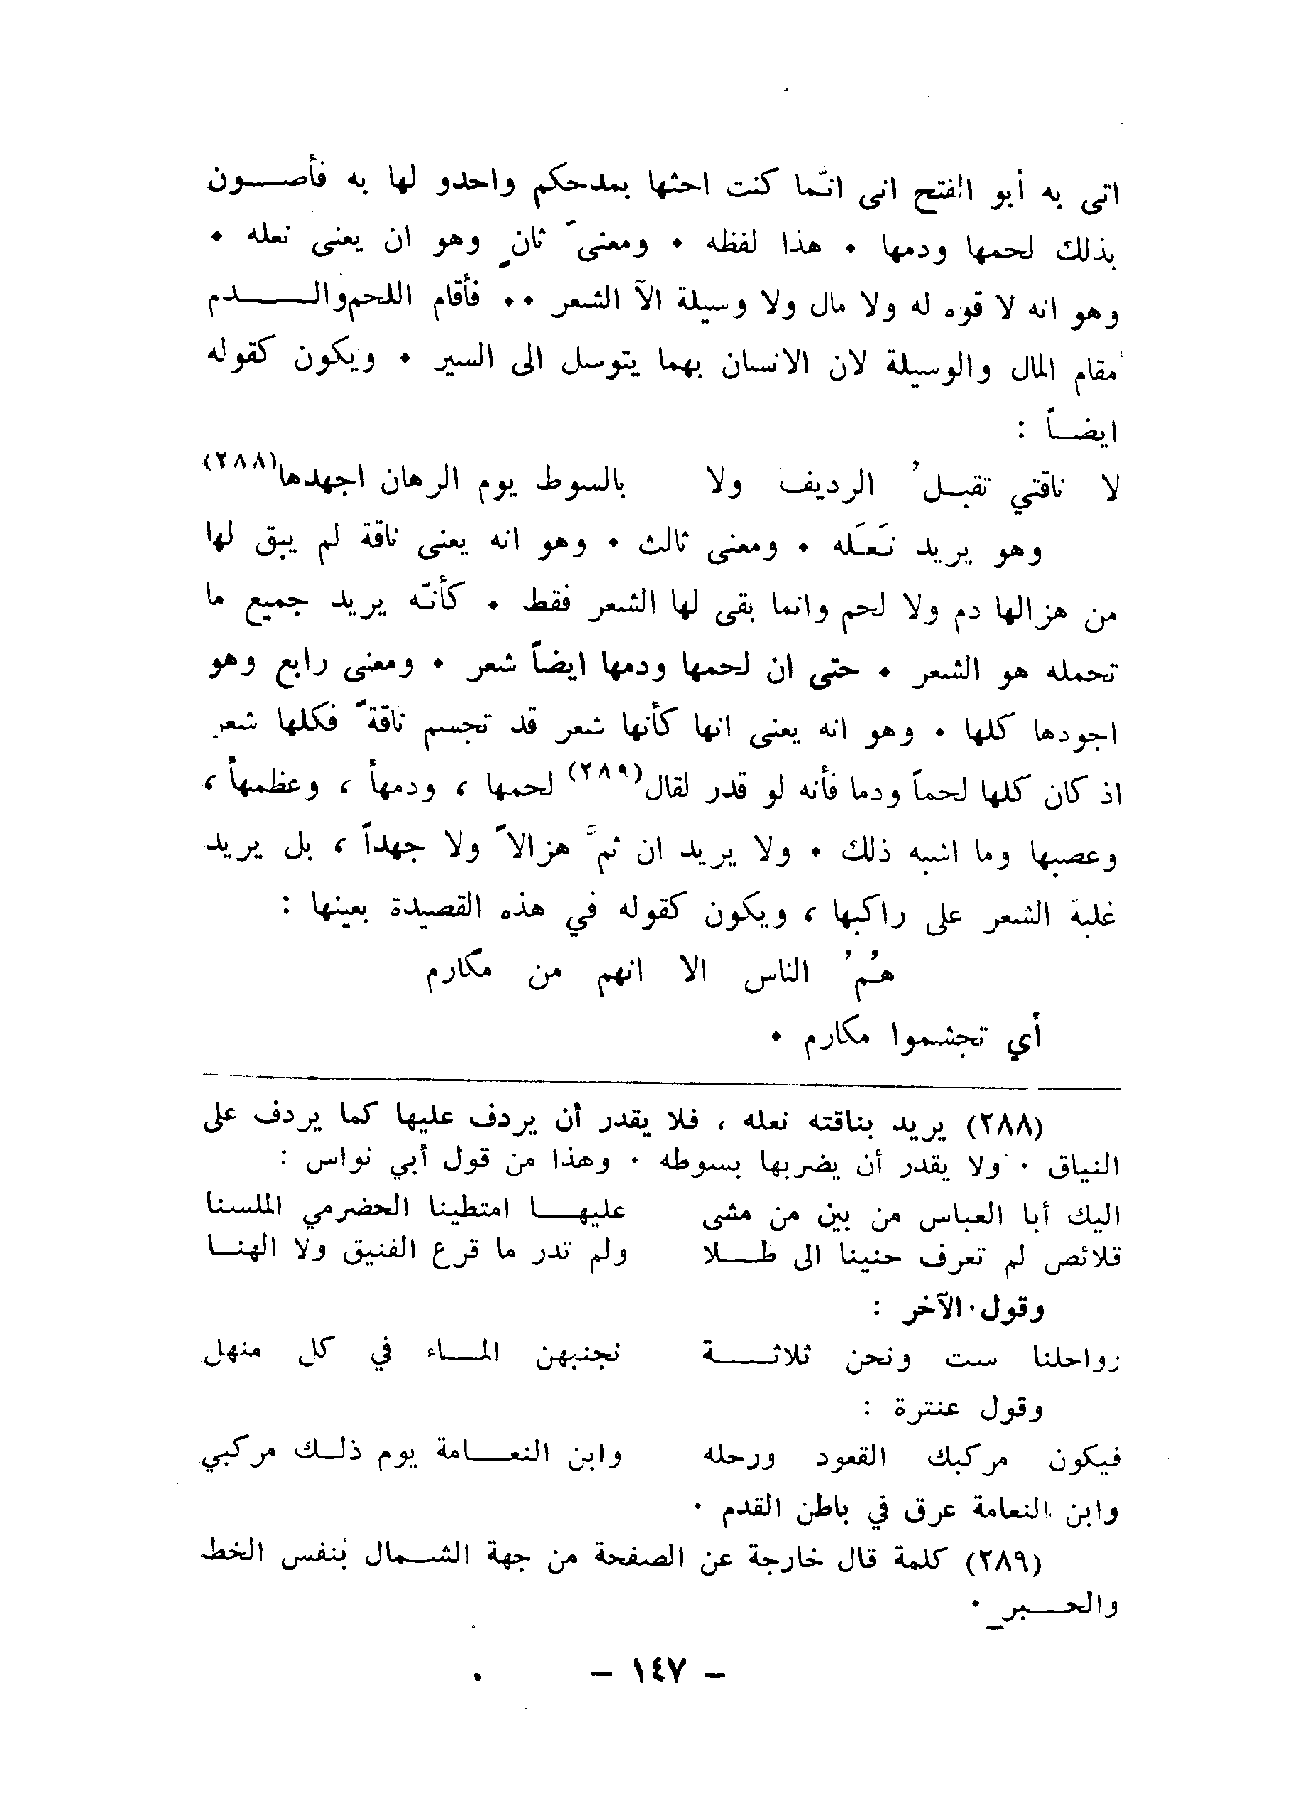 اتى به أبو الفتح انى انّما كنت احثها بمدحكم واحدو لها به فأصـــون
بذلك لحمها ودمها ٠ هذا لفظه ٠ ومعنىً ثانٍ وهو ان يعنى نعله ٠
وهو انه لا قوه له ولا مال ولا وسيلة الاّ الشعر ٠٠ فأقام اللحم والـــدم
مقام المال والوسيلة لان الانسان بهما يتوسل الى السير ٠ ويكون كقوله
ايضـاً :
لا ناقتي تقبـلُ الرديف ولا بالسوط يوم الرهان اجهدها(٢٨٨)
وهو يريد نَعـَله ٠ ومعنى ثالث ٠ وهو انه يعنى ناقة لم يبق لها
من هزالها دم ولا لحم وانما بقى لها الشعر فقط ٠ كأنّه يريد جميع ما
تحمله هو الشعر ٠ حتى ان لحمها ودمها ايضاً شعر ٠ ومعنى رابع وهو
اجودها كلها ٠ وهو انه يعنى انها كأنها شعر قد تجسم ناقةً فكلها شعر
اذ كان كلها لحماً ودما فأنه لو قدر لقال(٢٨٩) لحمها ، ودمهأ ، وعظمهأ ،
وعصبها وما اشبه ذلك ٠ ولا يريد ان ثمَّ هزالاً ولا جهداً ، بل يريد
غلبة الشعر على راكبها ، ويكون كقوله في هذه القصيدة بعينها :
هُـمُ الناس الا انهم من مكارم
أي تجشموا مكارم ٠
(٢٨٨) يريد بناقته نعله ، فلا يقدر أن يردف عليها كما يردف على
النياق ٠ ولا يقدر أن يضربها بسوطه ٠ وهذا من قول أبي نواس :
اليك أبا العباس من بين من مشى عليهـــا امتطينا الحضرمي الملسنا
قلائص لم تعرف حنينا الى طـــلا ولم تدر ما قرع الفنيق ولا الهنـــا
وقول الآخر :
رواحلنا ست ونحن ثلاثـــة نجنبهن المـــاء في كل منهل
وقول عنترة :
فيكون مركبك القعود ورحله وابن النعـــامة يوم ذلـك مركبي
وابن النعامة عرق في باطن القدم ٠
(٢٨٩) كلمة قال خارجة عن الصفحة من جهة الشـمال بنفس الخط
والحـــبر ٠
– ١٤٧ –